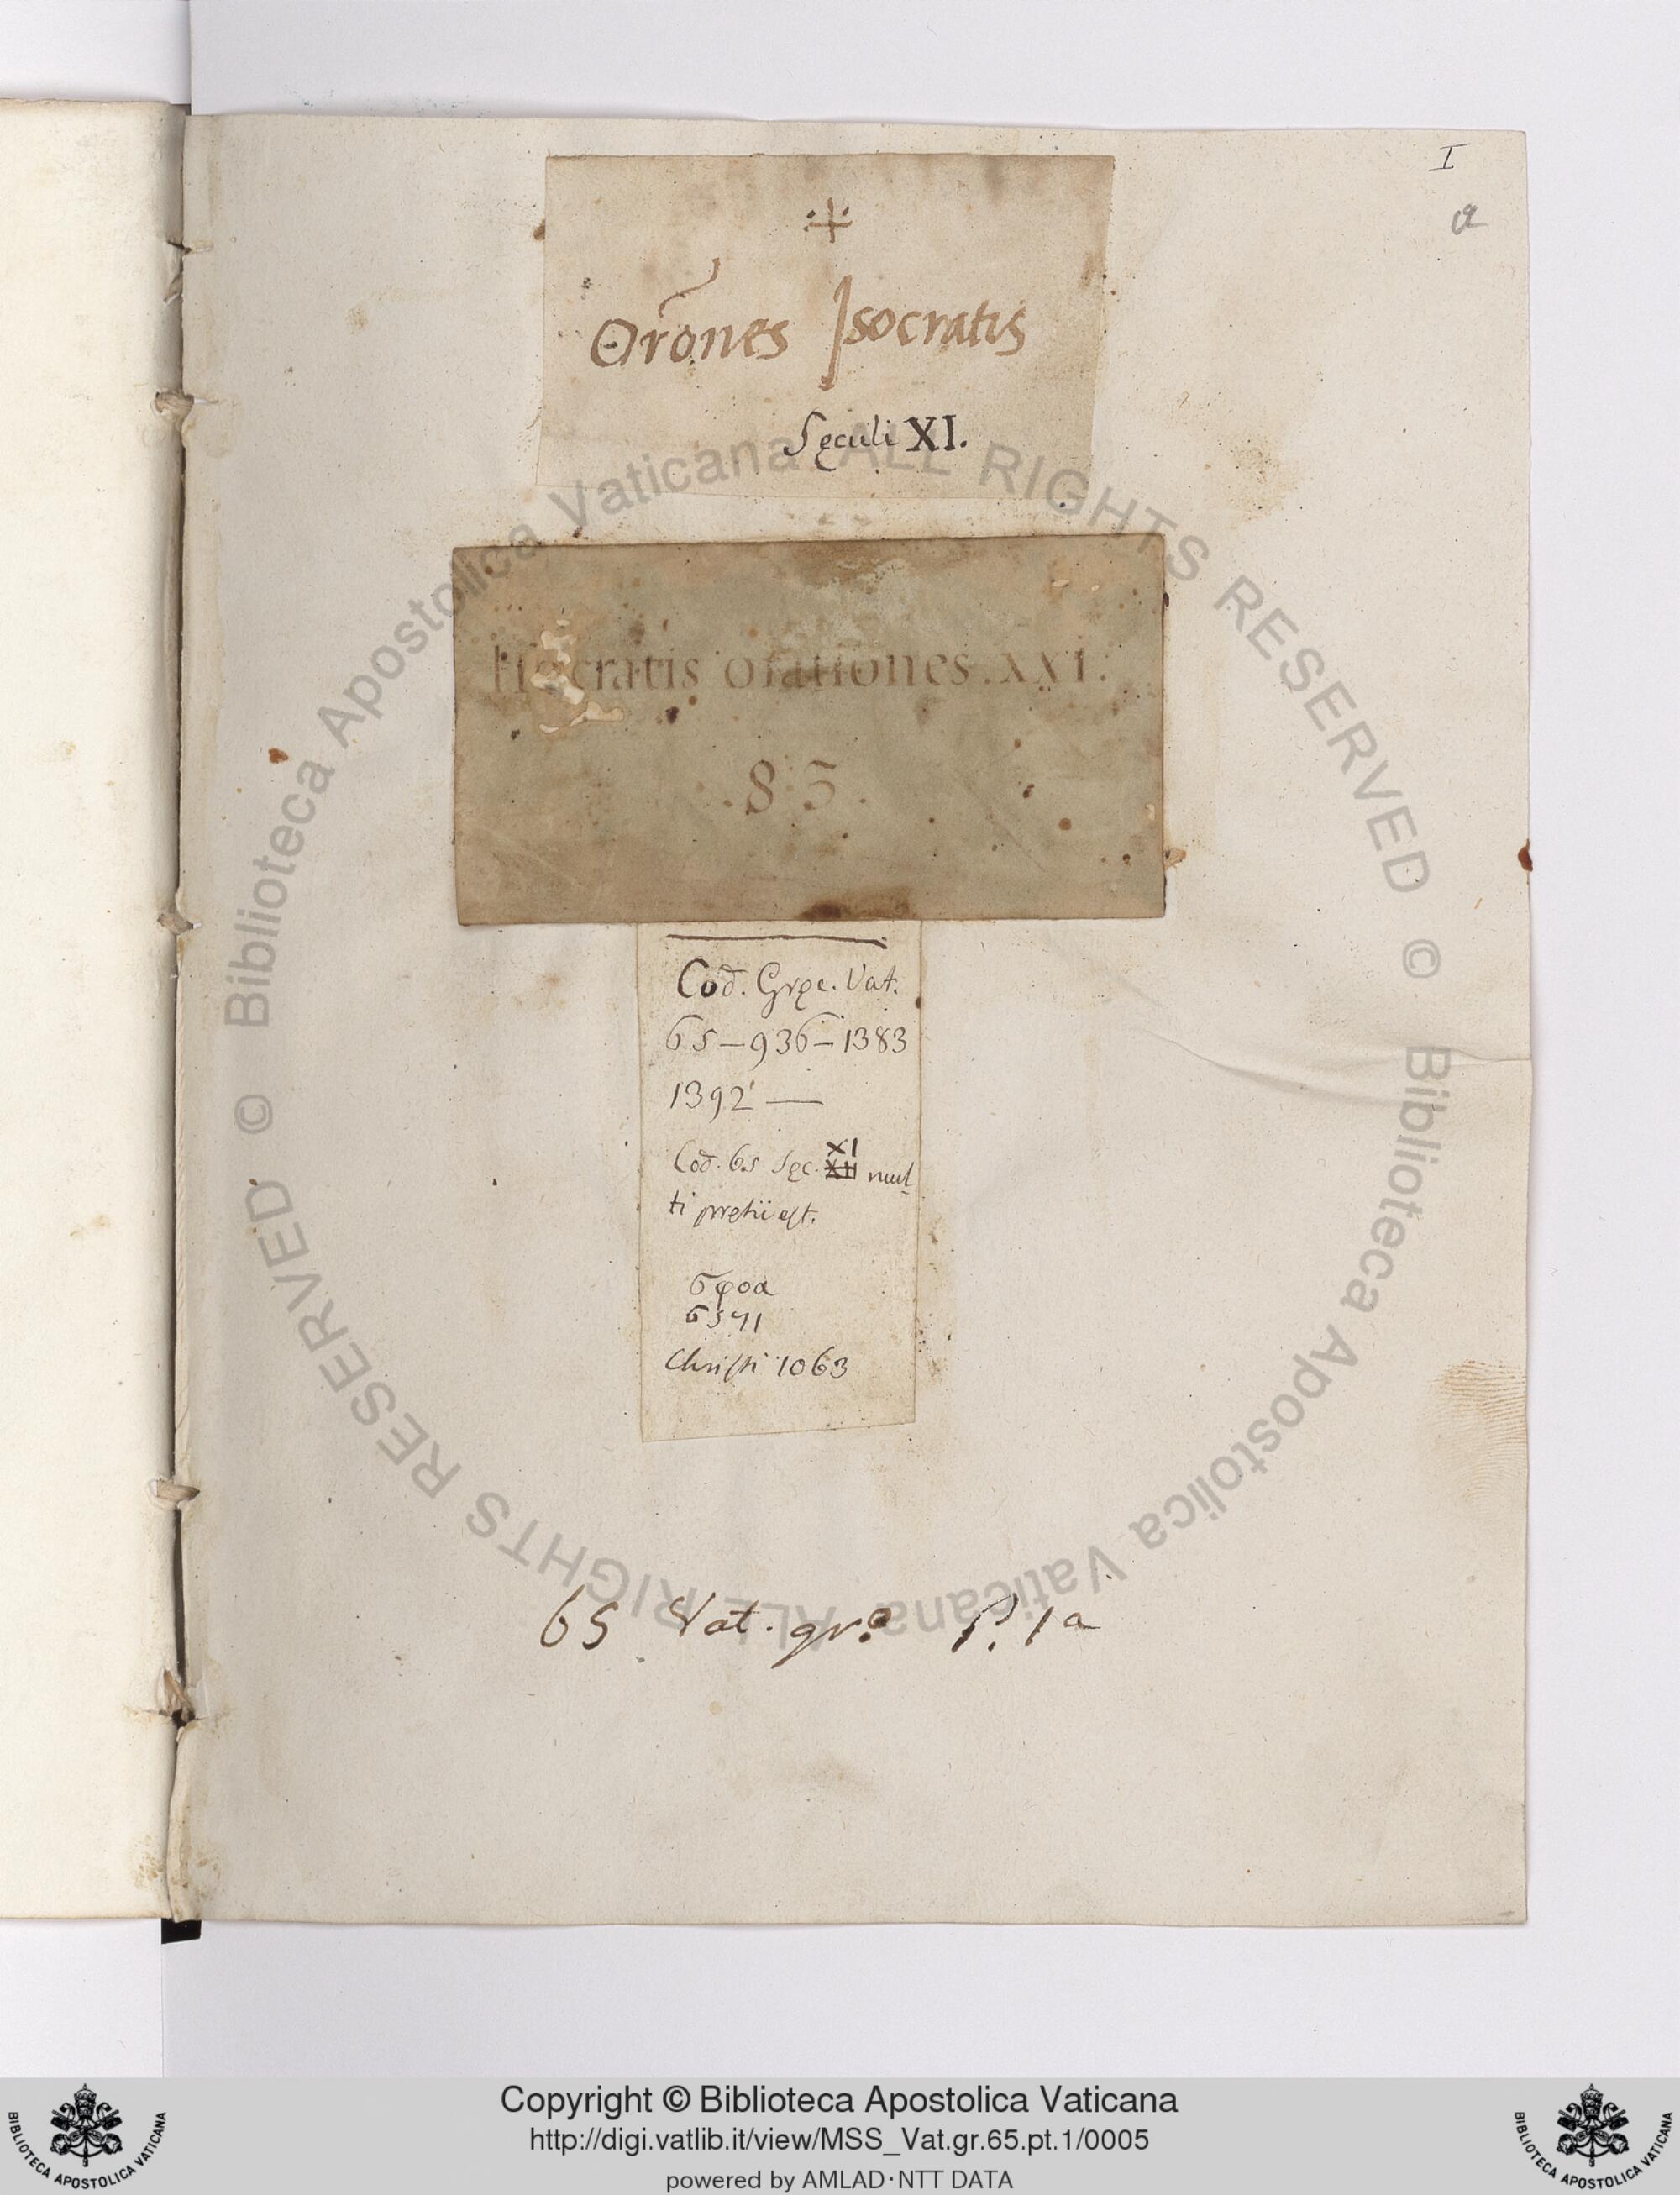 I
a
Orōnes Isocratis
Sęculi XI.
Isocratis orationes. XXI.
. 8 5 .
Cod. Gręc. Vat.
65 – 936 – 1383
1392 —
Cod. 65 Sęc. XI mul
ti pretii est.
ϛφοα
6571
Christi 1063
65 Vat. gr. P. 1a
© Biblioteca Apostolica Vaticana ALL RIGHTS RESERVED © Biblioteca Apostolica Vaticana ALL RIGHTS RESERVED
Copyright © Biblioteca Apostolica Vaticana
http://digi.vatlib.it/view/MSS_Vat.gr.65.pt.1/0005
powered by AMLAD·NTT DATA
BIBLIOTECA APOSTOLICA VATICANA
BIBLIOTECA APOSTOLICA VATICANA